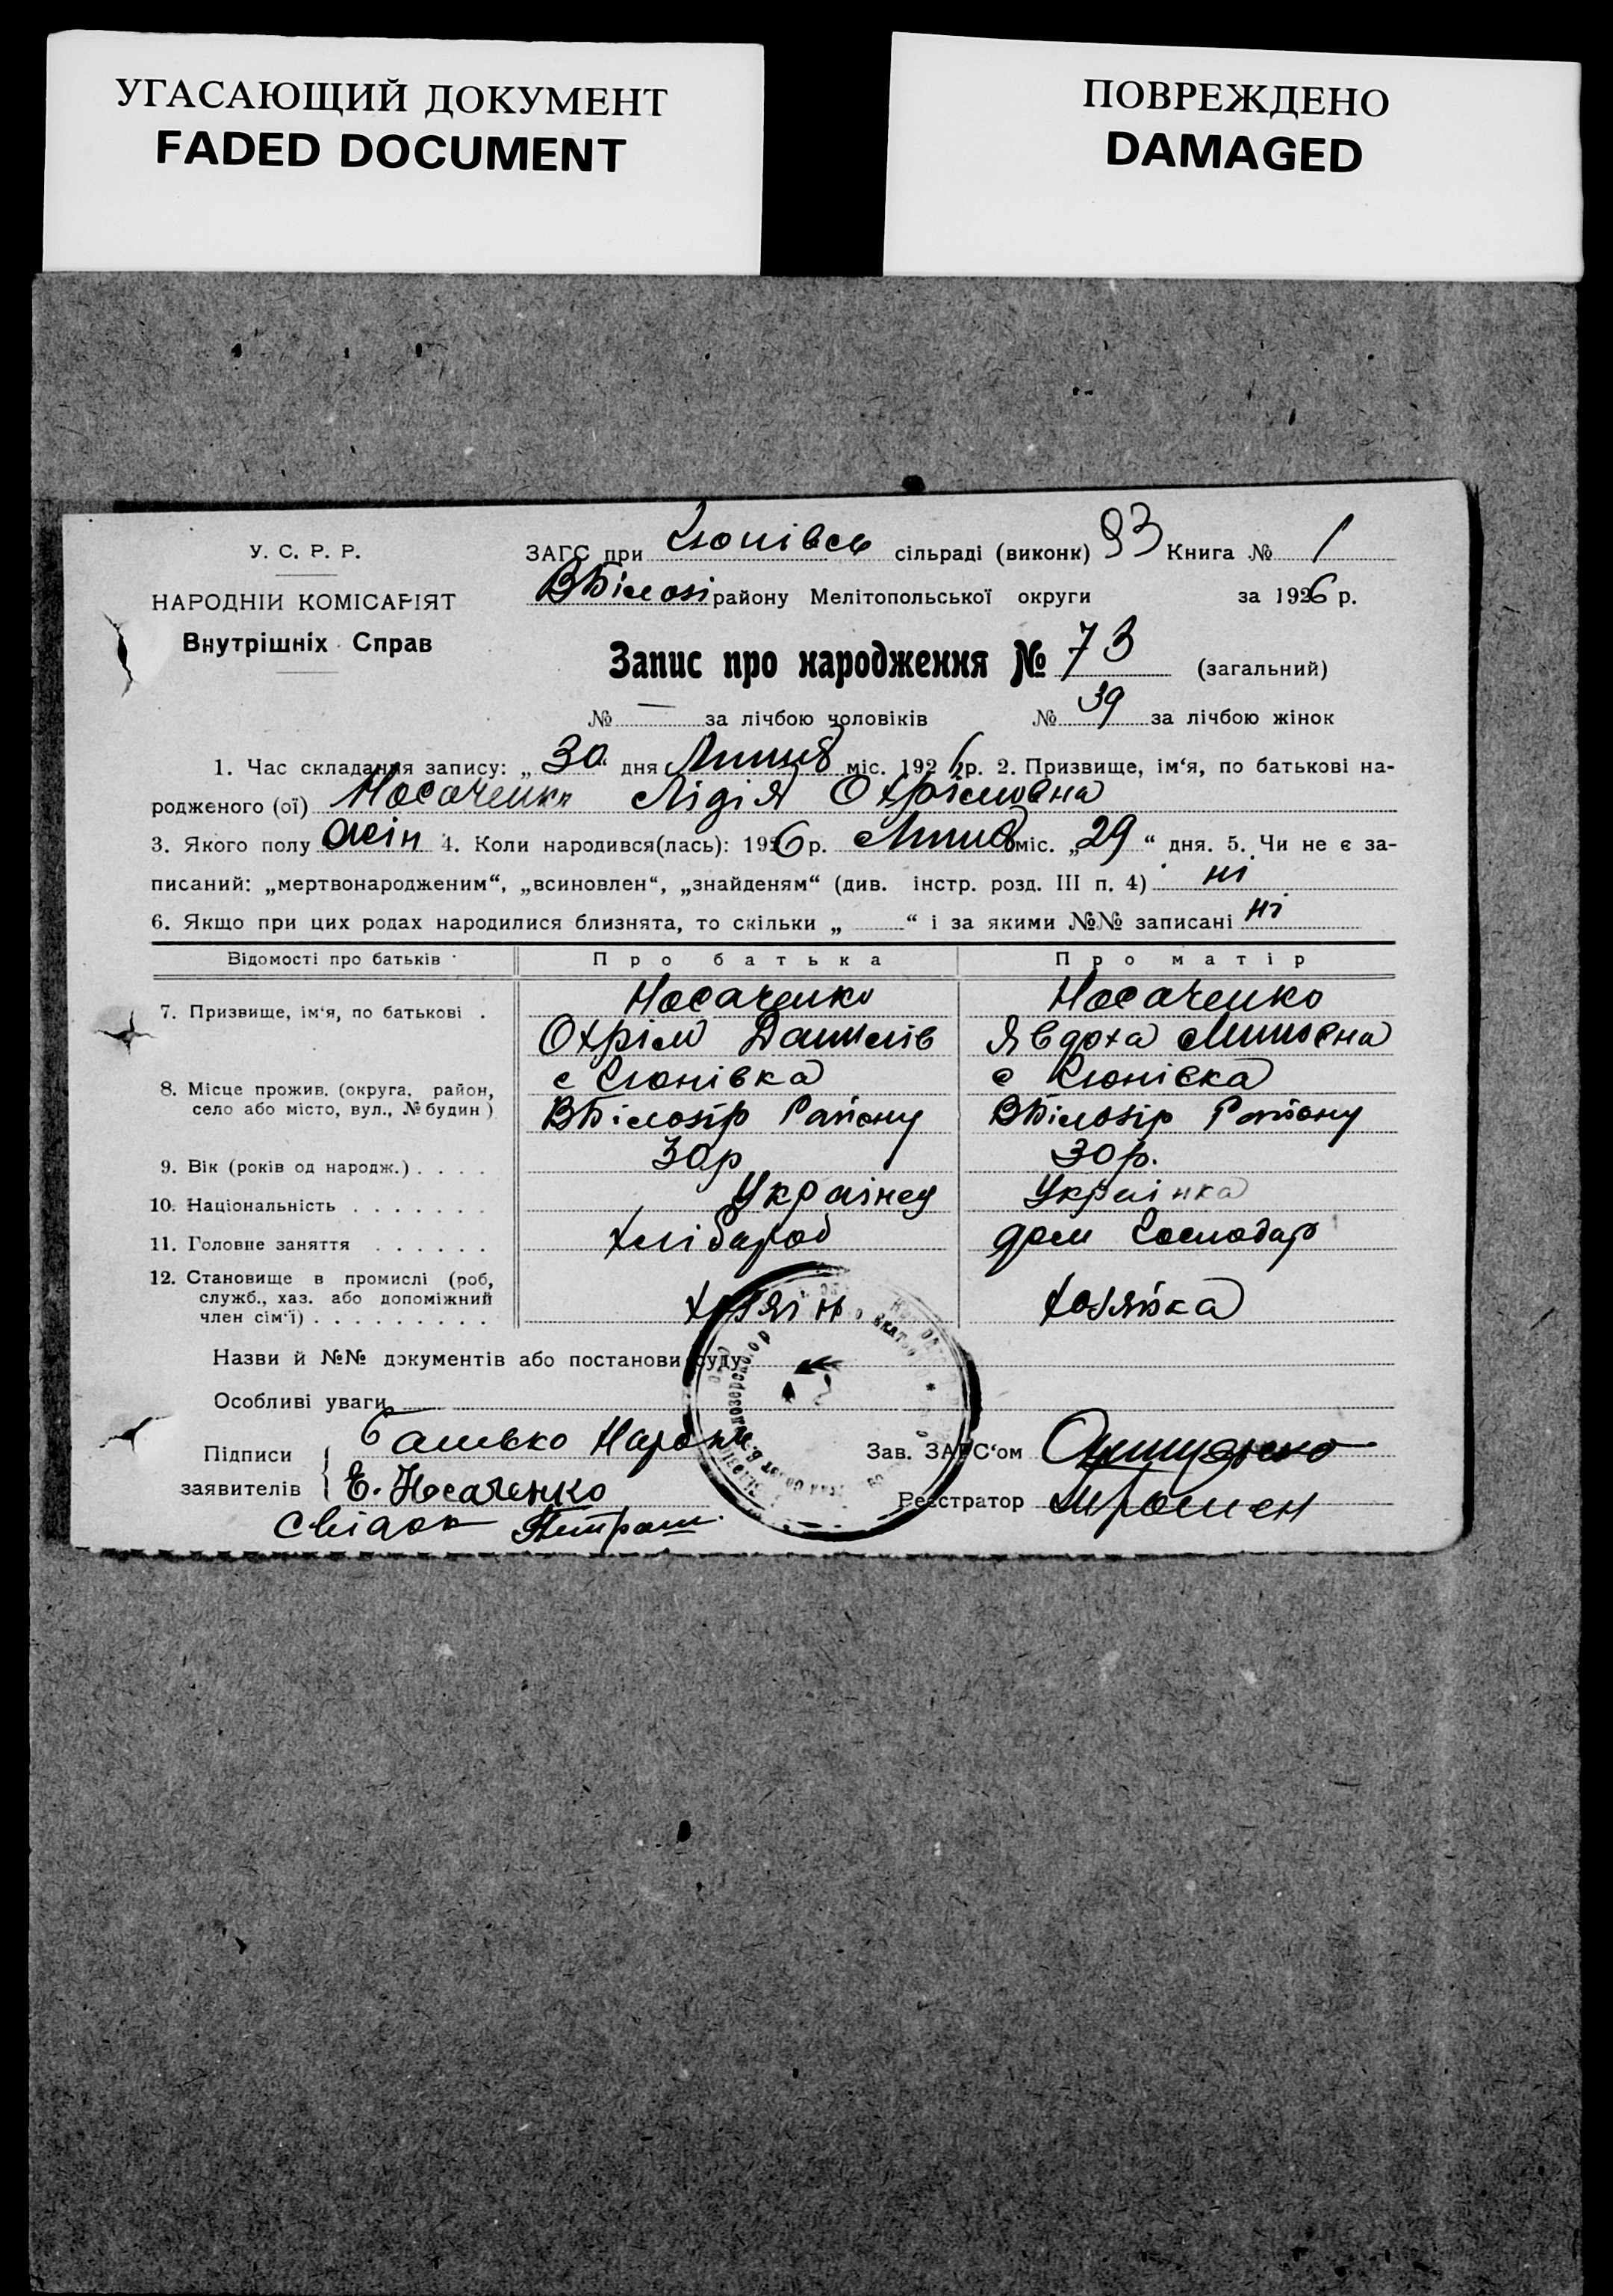 УГАСАЮЩИЙ ДОКУМЕНТ
FADED DOCUMENT
ПОВРЕЖДЕНО
DAMAGED
У. С. Р. Р.
НАРОДНІЙ КОМІСАРІЯТ
Внутрішніх Справ
ЗАГС при сільраді (виконк) 93 Книга № 1
ВБілозі району Мелітопольської округи за 1926 р.
Запис про народження № 73 (загальний)
№ — за лічбою чоловіків № 39 за лічбою жінок
1. Час складання запису: „ 30 дня Липня міс. 1926 р. 2. Призвище, ім‘я, по батькові на-
родженого (ої) Носаченко Лідія Охрімовна
3. Якого полу жін 4. Коли народився(лась): 1926 р. Липня міс. „29“ дня. 5. Чи не є за-
писаний: „мертвонародженим“, „всиновлен“, „знайденям“ (див. інстр. розд. III п. 4) ні
6. Якщо при цих родах народилися близнята, то скільки „ “ і за якими №№ записані ні
Відомості про батьків Про батька Про матір
7. Призвище, ім‘я, по батькові . Носаченко Носаченко
Охрім Данилів Явдоха
8. Місце прожив. (округа, район, с с
село або місто, вул., № будин) ВБілозір Району ВБілозір Району
9. Вік (років од народж.) . . . . 30р 30р.
10. Національність . . . . . . . Українец Українка
11. Головне заняття . . . . . . хлібароб дом Господар
12. Становище в промислі (роб,
служб., хаз. або допоміжний
член сім‘ї) . . . . . . . . . хозяїн хозяйка
Назви й №№ документів або постанови суду
Особливі уваги
Підписи
заявителів Е. Носаченко
Свідок
Зав. ЗАГС‘ом
Реєстратор